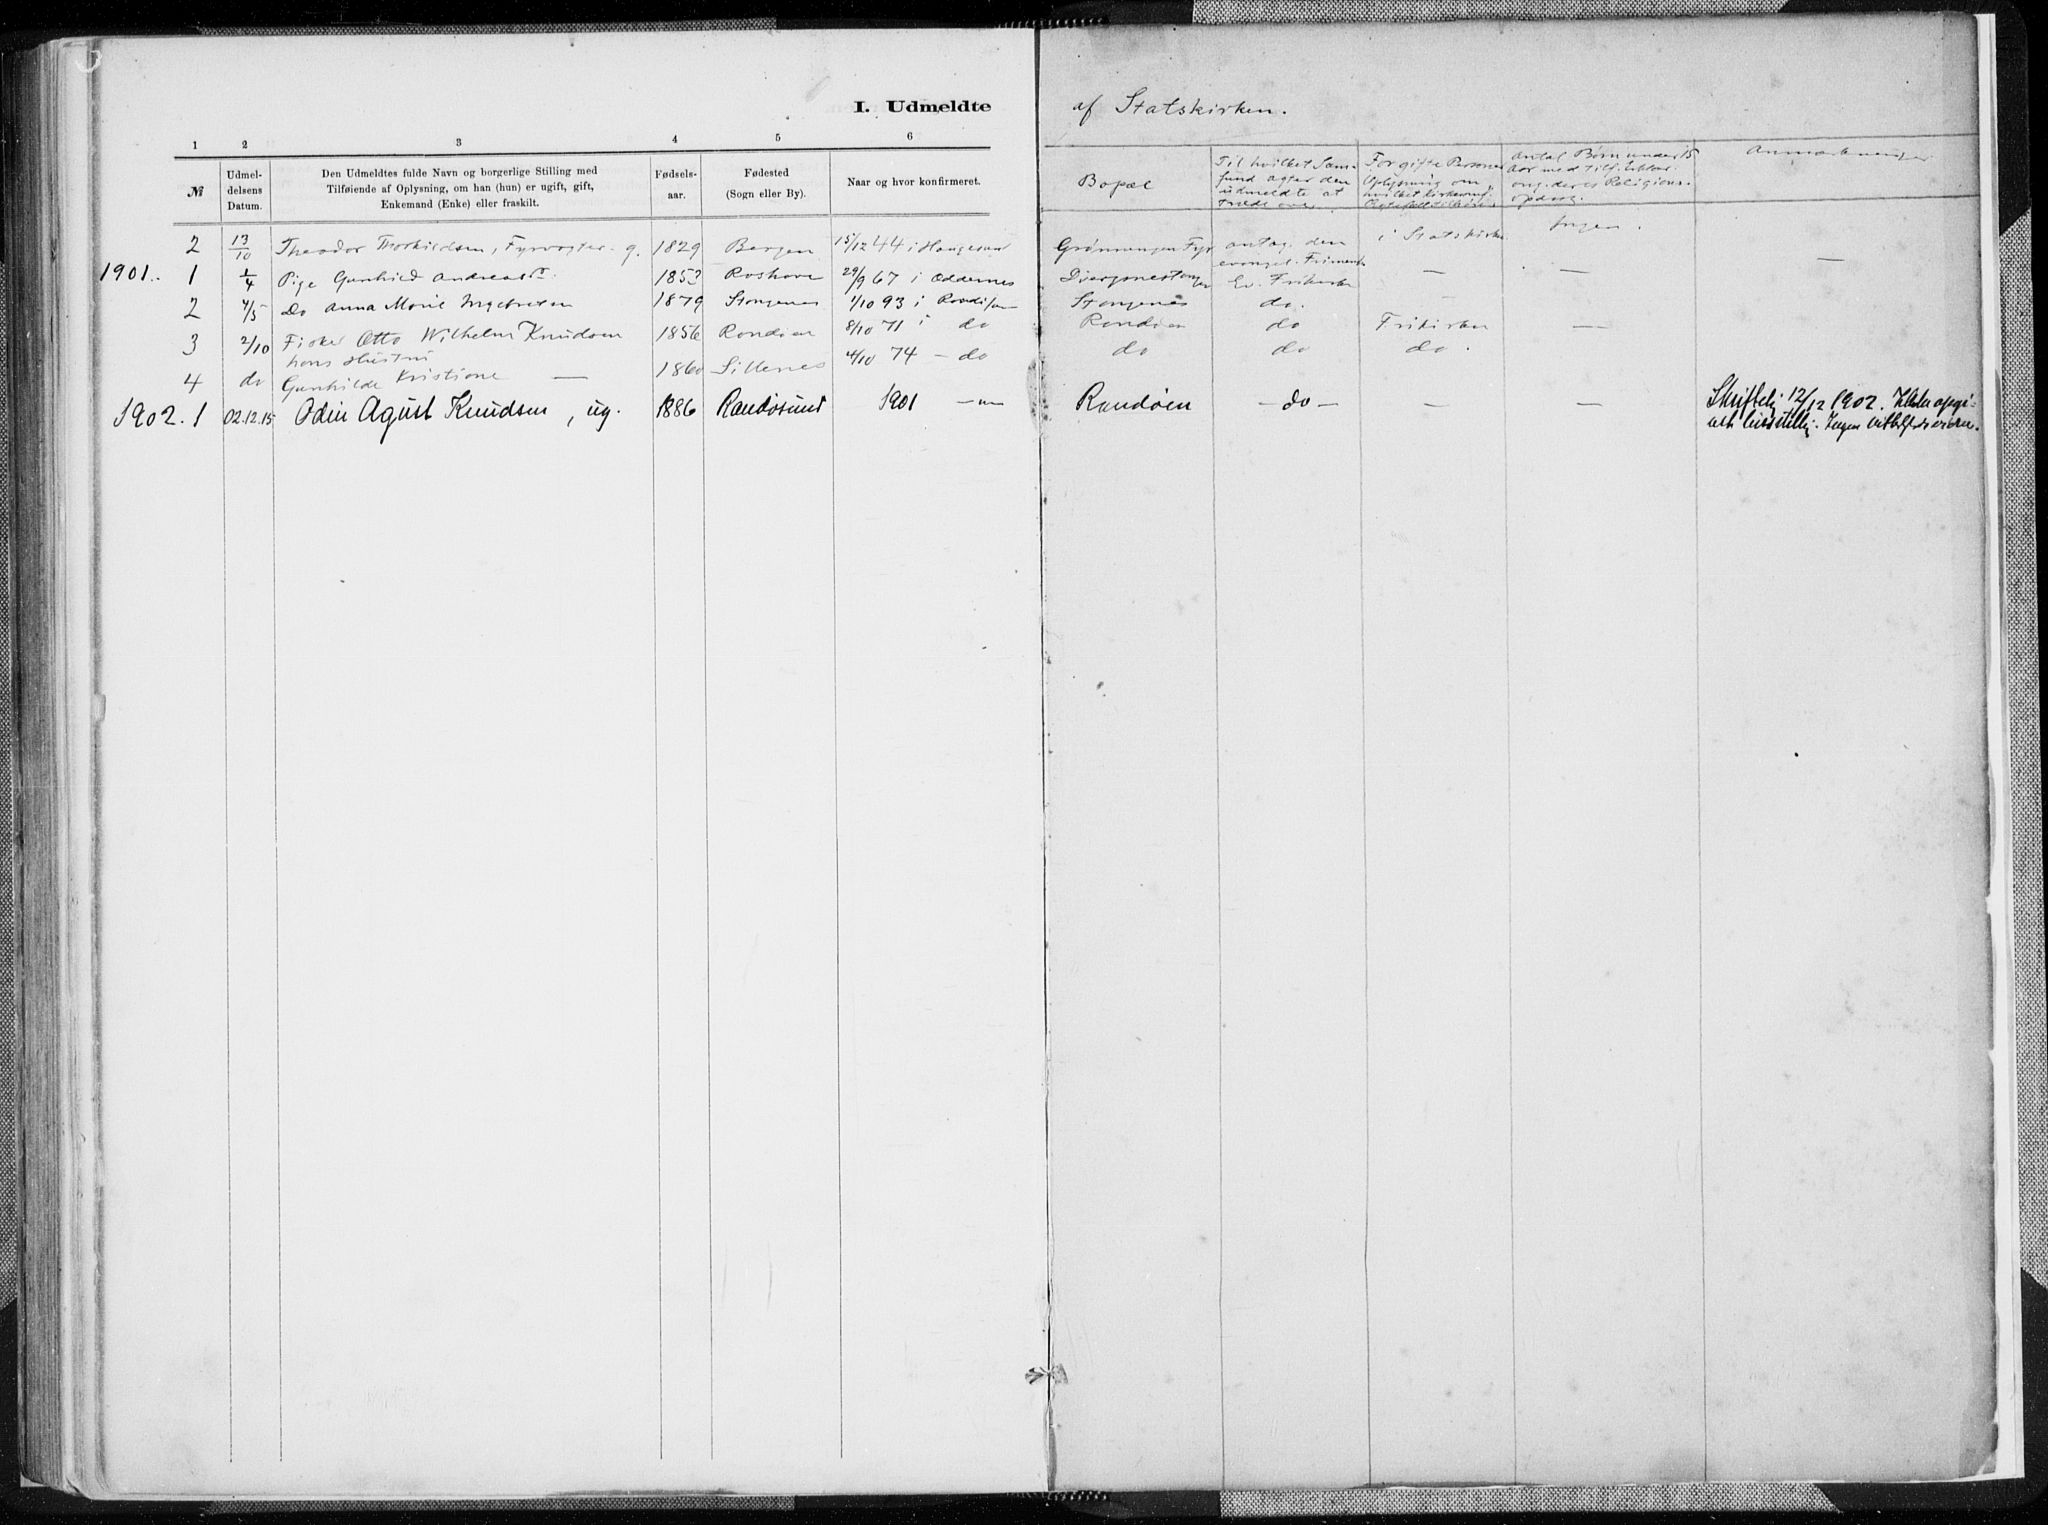 I. Udmeldte af Statskirken.
1 2 3 4 5 6
№ Udmeldelsens Datum. Den Udmeldtes fulde Navn og borgerlige Stilling med Tilføiende af Oplysning, om han (hun) er ugift, gift, Enkemand (Enke) eller fraskilt. Fødselsaar. Fødested (Sogn eller By). Naar og hvor konfirmeret. Bopæl Til hvilket Samfund agter den udmeldte at træde over For gifte Personer Oplysning om hvilket Antal Børn under 15 Aar med deres Religions- Anmærkninger
2 13/10 Theodor Thorkildsen, Fyrvogter g. 1829 Bergen 15/12 44 i Haugesund Grønningen Fyr antag. den evangel. i Statskirke Ingen.
1901. 1 1/4 Pige Gunhild Andreasdt 1853 29/9 67 i Oddernes Ev. Frikirke — — —
2 4/5 Do Anna Marie Ingebretsen 1879 Stangenes 1/10 93 i Stangenes do.
3 2/10 Fisker Otto Wilhelm Knudsen 1856 Randøen 8/10 71 i do Randøen do Frikirken —
hans Hustru
4 do Gunhilde Kristiane — 1860 4/10 74 - do do do do.
1902. 1 02.12.15 Odin Agust Knudsen, ug. 1886 Randøsund 1901 —"— Randøen - do - — — Skriftlig 12/12 1902. Ikke